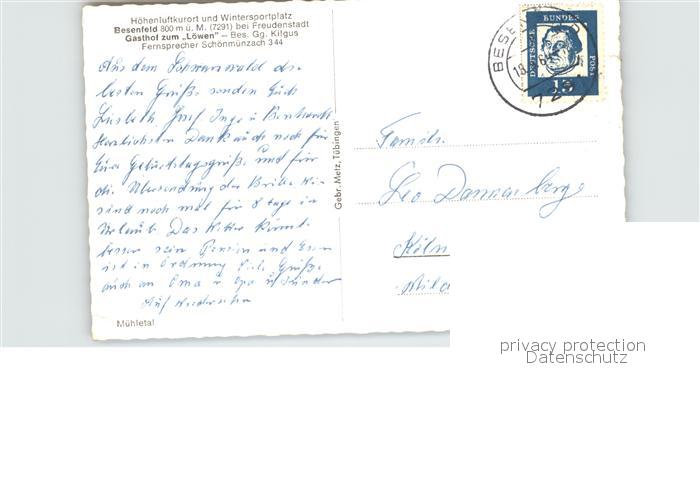 Höhenluftkurort und Wintersportplatz
Besenfeld 800 m ü. M. (7291) bei Freudenstadt
Gasthof zum „Löwen" – Bes. Gg. Kifgus
Fernsprecher Schönmünzach 344
Aus dem Schwarzwald die
besten Grüße senden Euch
Liesbeth Josef Inge u Bernhardt
Herzlichsten Dank auch noch für
Eure Geburtstagsgrüße und für
die Übersendung der Brille Wir
sind noch mal für 8 tage in
Urlaub Das Wetter könnte
besser sein Pension und Essen
ist in Ordnung Viele Grüße
auch an Oma u Opa u Kinder
Auf Wiedersehn
Mühletal
Gebr. Metz, Tübingen
DEUTSCHE BUNDES POST
15
BESE
18
72
Familie
Leo Dannenberg
Köln
privacy protection
Datenschutz